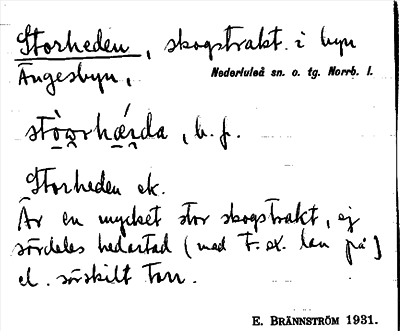 Storheden, skogstrakt i byn
Ängesbyn,
Nederluleå sn. o. tg. Norrb. l.
b. f.
Storheden ek.
Är en mycket stor skogstrakt, ej
särdeles hedartad (med t. ex. lav på)
el. särskilt torr.
E. BRÄNNSTRÖM 1931.